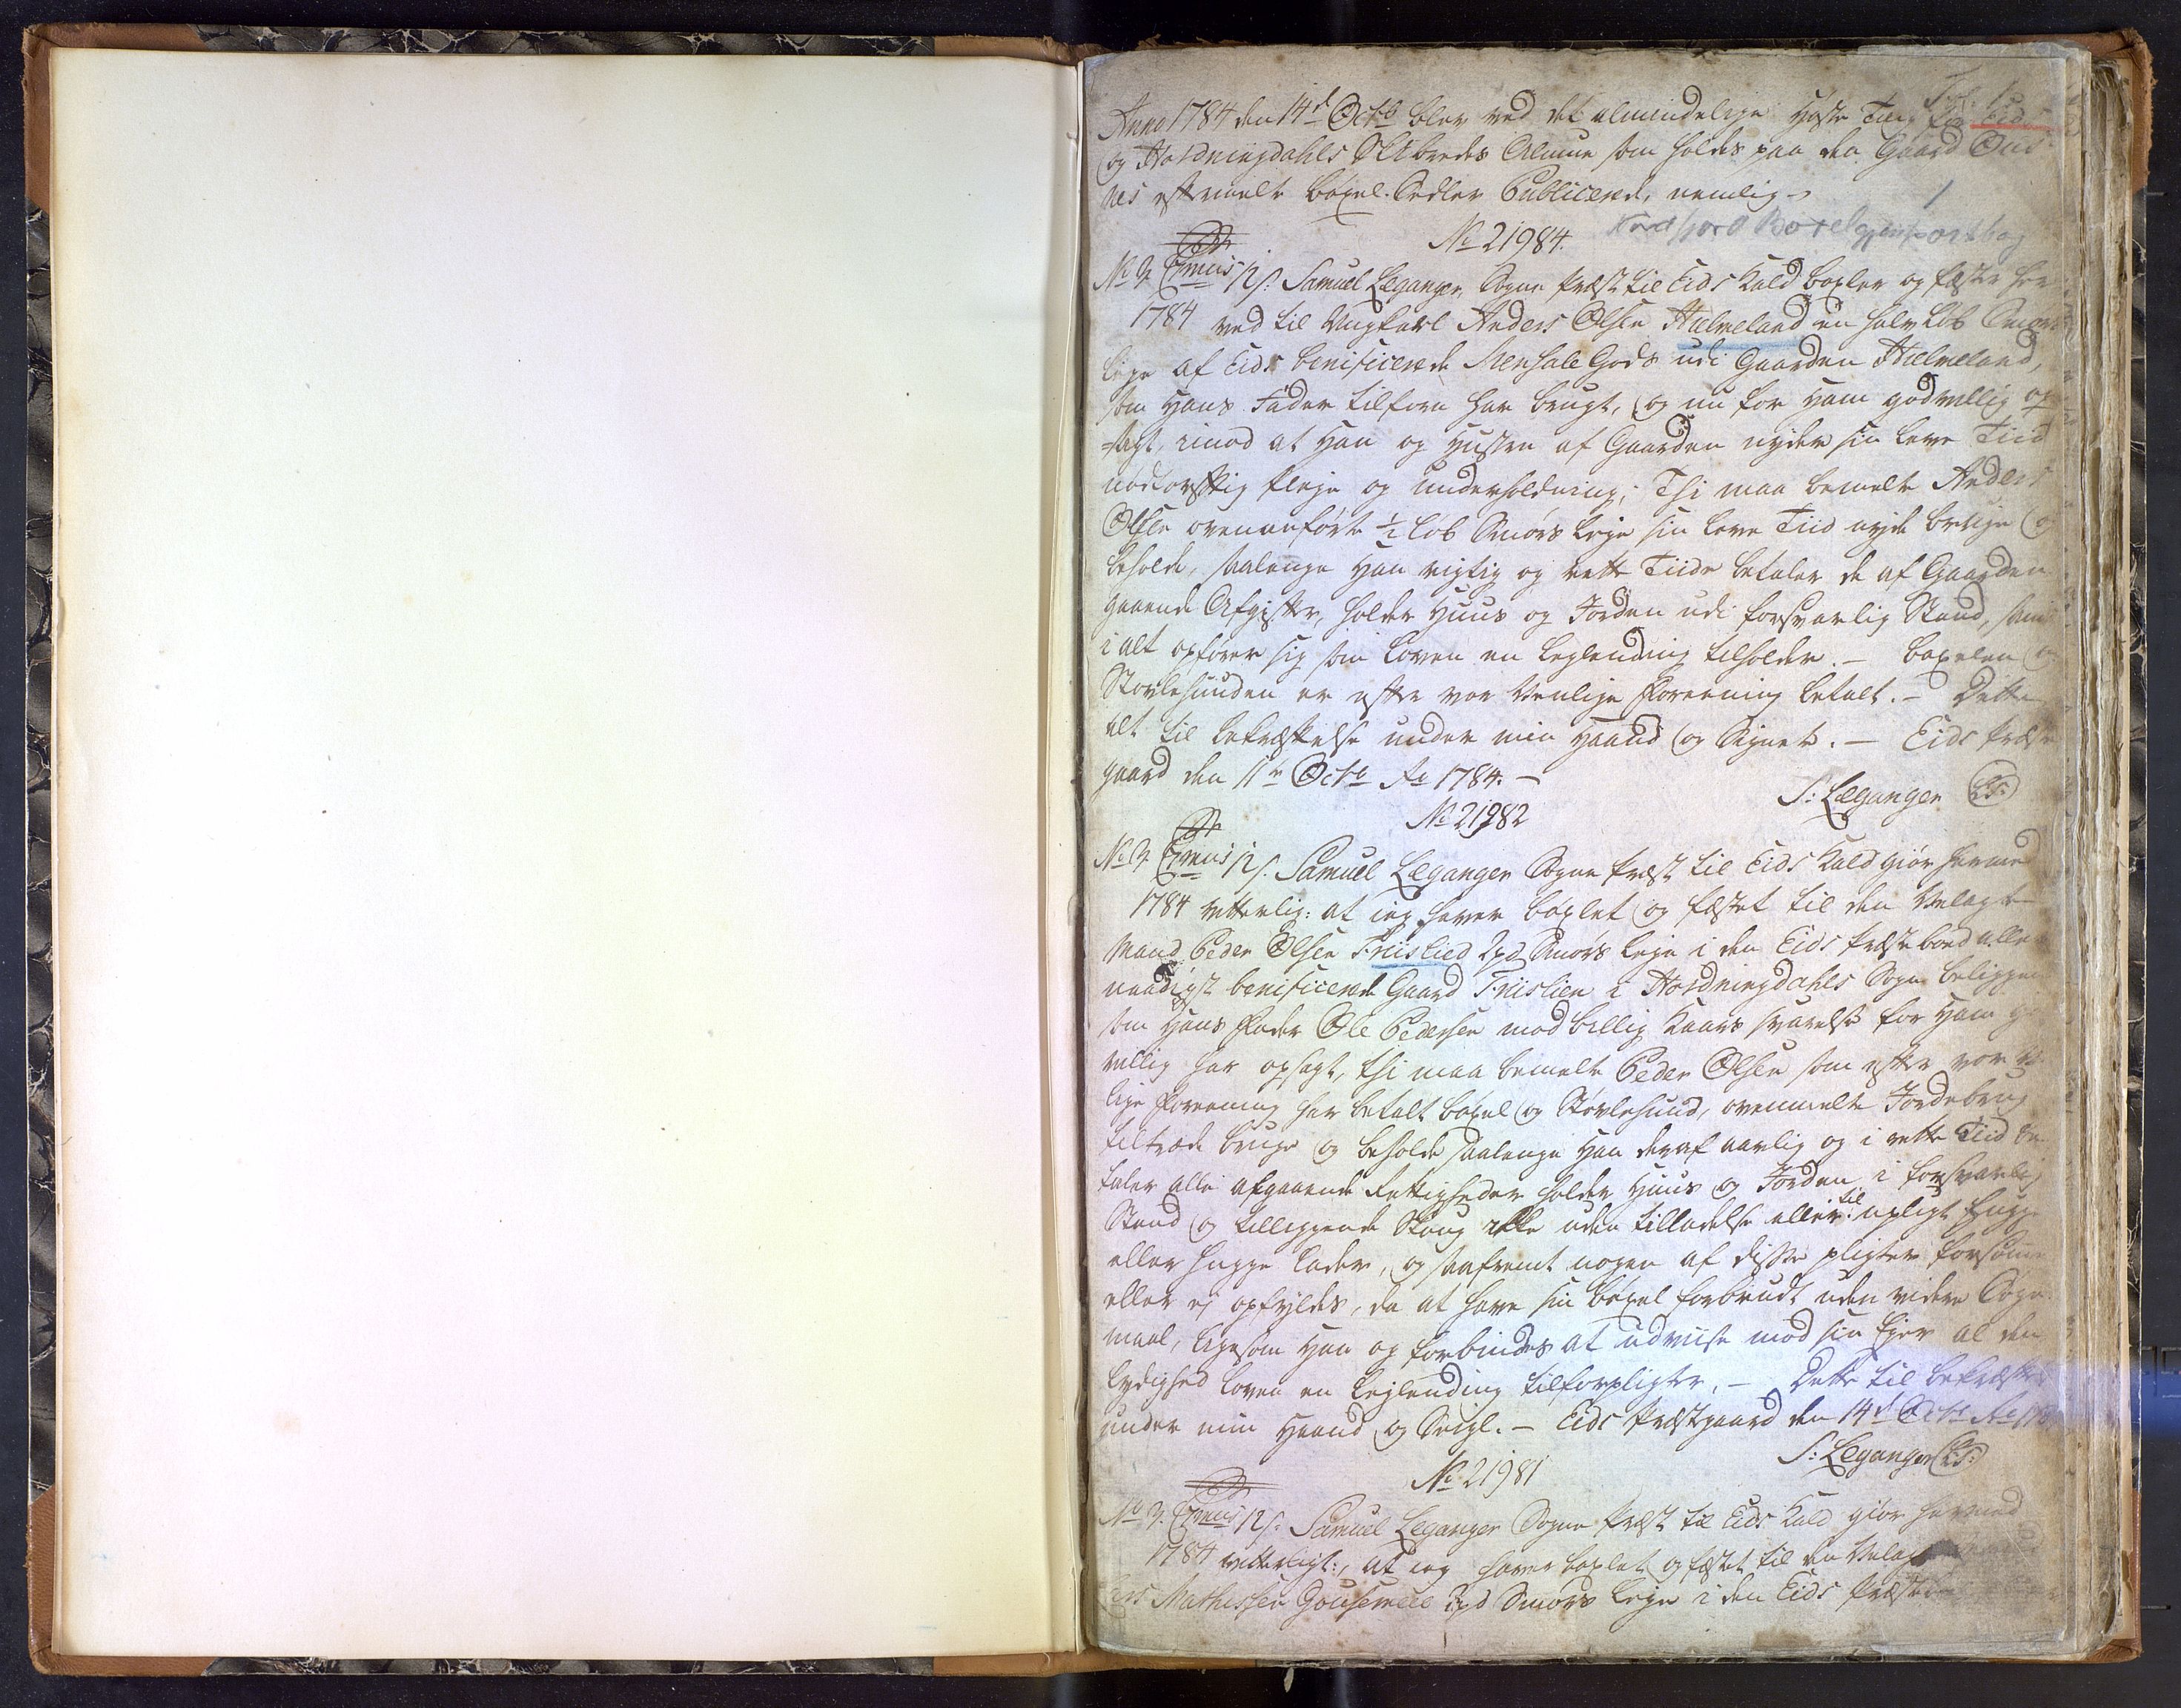 Fol. 1.
Anno 1784 den 14d Octb blev ved det almindelige Høste Ting for Eids
og Hordningdahls Skibredes Almue som holdes paa den Gaard Ous-
nes eftermelte böxel-Sedler Publicered, nemlig
1
Nordfjord
No 21984.
No 2 12 s. Samuel Leganger, Sogne Præst til Eids Kald boxler og fæster her
1784 ved til Ungkarl Anders Olsen Hielmeland en halv Løb Smørs
leje af Eids beneficerede Mensale Gods udi Gaarden Hielmeland,
som Hans Fader tilforn har brugt, og nu for Ham godvillig op
=sagt, imod at Han og Hustru af Gaarden nyder sin leve Tiid
nødtørftig Pleje og underholdning; Thi maa bemelte Anders
Olsen ovenanførte 1/2 Løb Smørs leje sin leve Tiid nyde bruge og
beholde, saalenge Han rigtig og rette Tiide betaler de af Gaarden
gaaende Afgifter, holder Huus og Jorden udi forsvarlig Stand, samt
i alt opfører sig som Loven en Leglending tilholder. - Boxelen og
Støvlehuuden er efter vor Venlige Foreening betalt. - Dette
alt til bekræftelse under min Haand og Signet. - Eids Præste
gaard den 11te Octb Ao 1784. -
S: Leganger LS:
No 21982
No 2 12 s. Samuel Leganger Sogne Præst til Eids Kald giør hermed
1784 vitterlig: at jeg haver böxlet og fæstet til den Velagte
Mand Peder Olsen Friislied 2pd Smørs leje i den Eids Præstebord aller
naadigst beneficerede Gaard Friislien i Hordningdahls Sogn beliggende
som Hans Fader Ole Pedersen mod billig Kaars svarelse for Ham
villig har opsagt, thi maa bemelte Peder Olsen som efter vor
lige Foreening har betalt böxel og Støvlehuud, ovenmelte Jordebrug
tiltræde bruge og beholde saalenge Han deraf aarlig og i rette Tiid be-
taler alle afgaaende Rettigheder holder Huus og Jorden i forsvarlig
Stand og tilliggende Skoug ikke uden tilladelse eller til upligt hugge
eller hugge lader, og saafremt nogen af disse pligter forsømmes
eller ej opfyldes, da at have sin böxel forbrudt uden videre Søgs-
maal, ligesom Han og forbindes at udviise mod sin Ejer al den
lydighed Loven en Lejlending tilforpligter. - Dette til bekræftelse
under min Haand og Seigl. - Eids Præstgaard den 14d Octb Ao
S: Leganger LS:
No 21981
No 2. 12 s: Samuel Leganger Sogne Præst til Eids Kald giør hermed
1784 vitterligt:, at jeg haver boxlet og fæstet til den Velagte
Mathissen 2pd Smørs leje i den Eids Præste